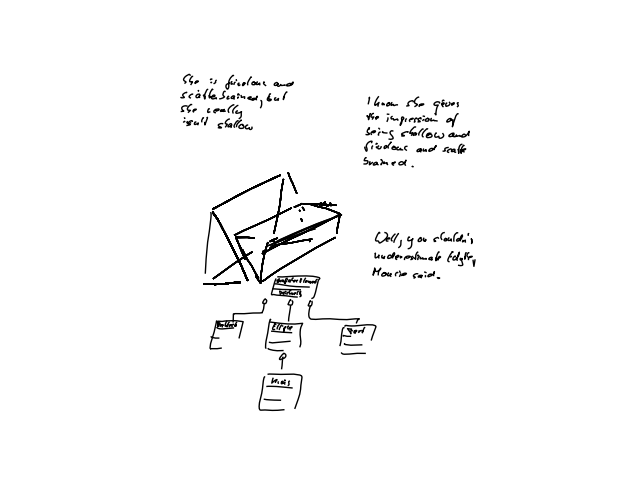 She is frivolous and
scatterbrained, but
she really
isn't shallow
I know she gives
the impression of
being shallow and
frivolous and scatter
brained.
Well, you shouldn't
underestimate Edyth,
Maurie said.
Ellipse
Kreis